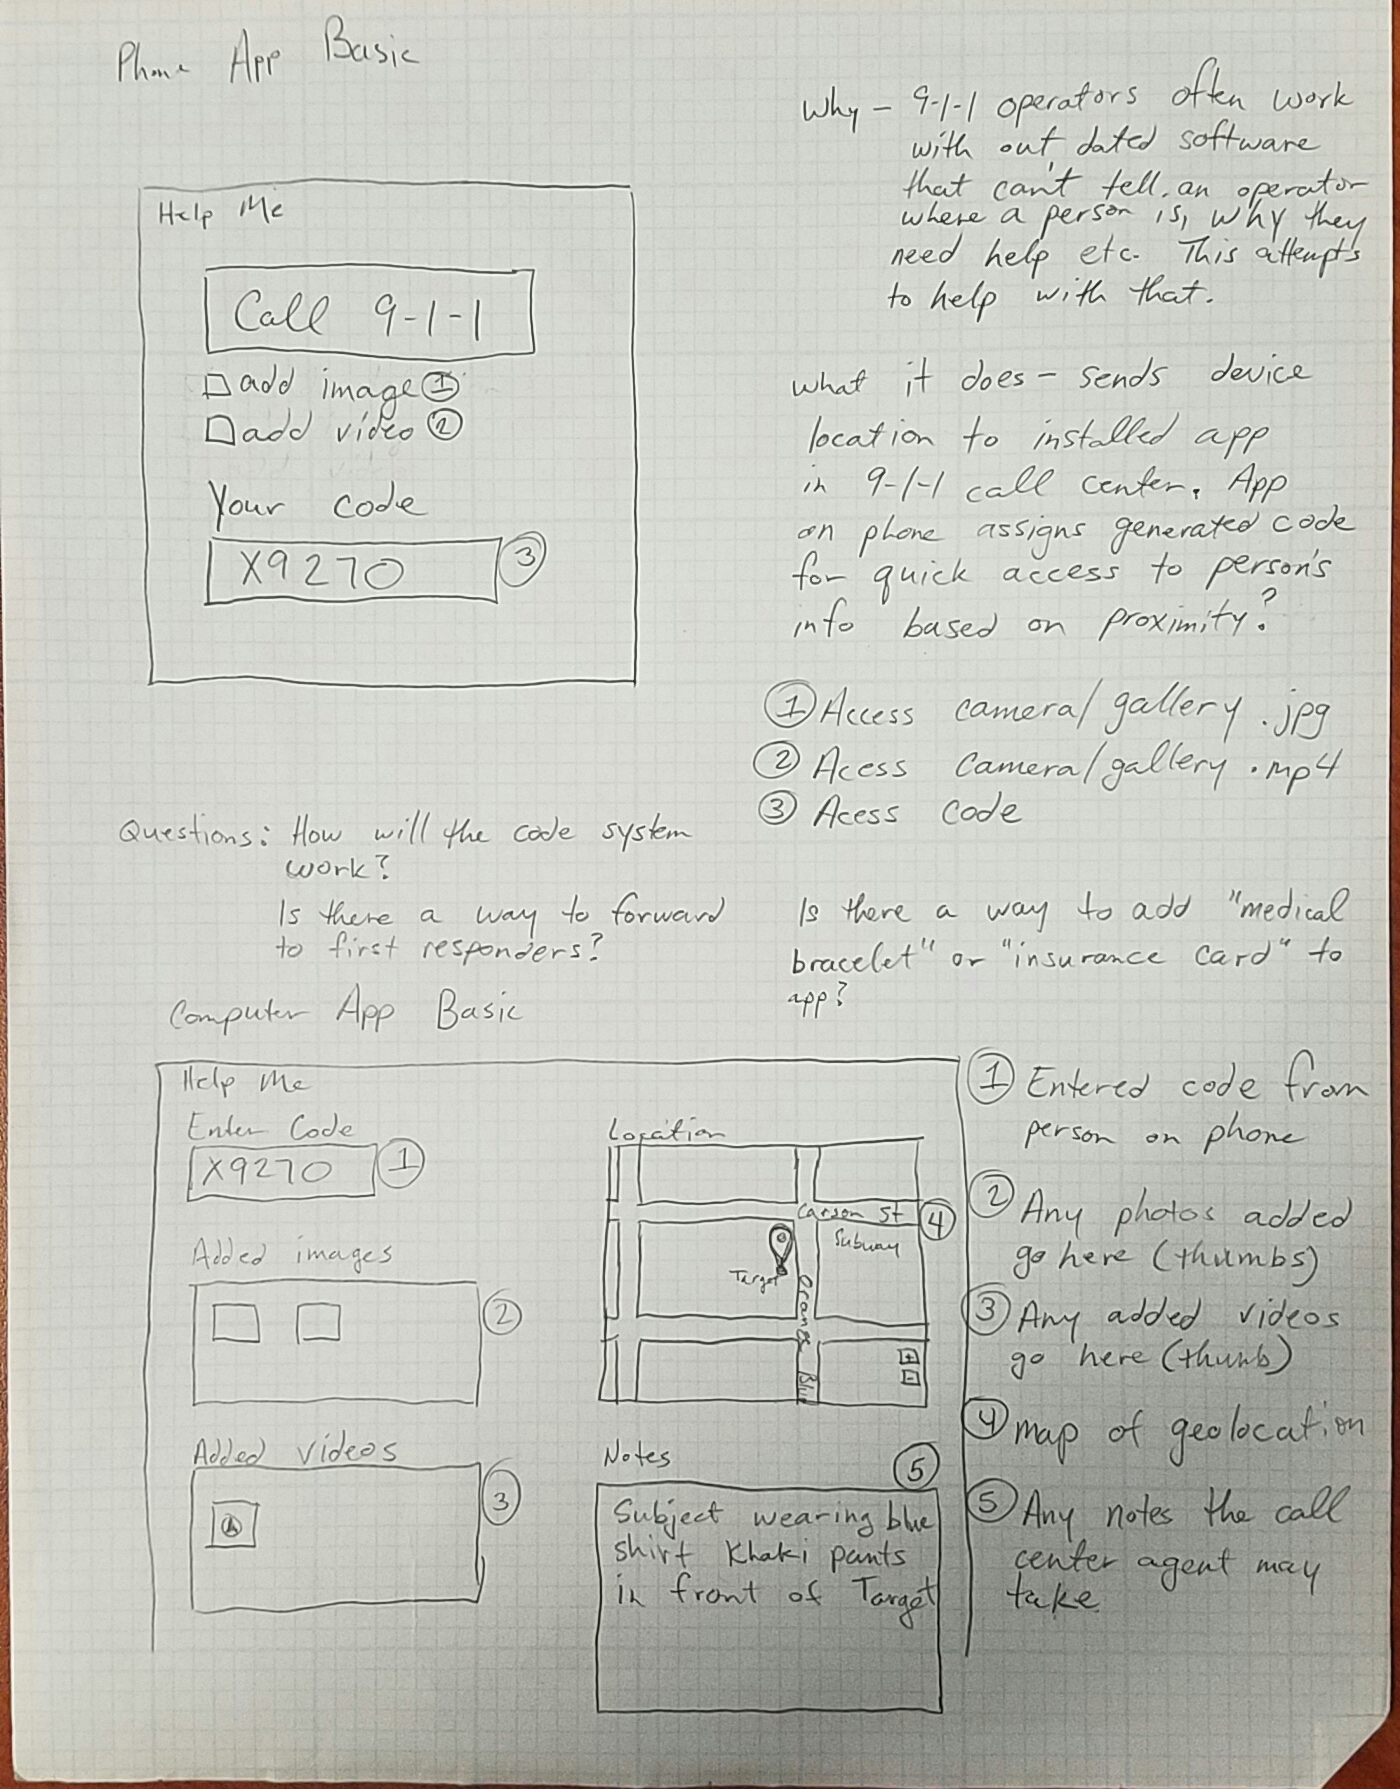 Phone App Basic
Why - 9-1-1 operators often work
with out dated software
that can't tell an operator
where a person is, why they
need help etc. This attempts
to help with that.
Help Me
Call 9-1-1
add image 1
add video 2
Your code
X9270 3
What it does - sends device
location to installed app
in 9-1-1 call center. App
on phone assigns generated code
for quick access to person's
info based on proximity?
1 Access camera/gallery .jpg
2 Acess camera/gallery .mp4
3 Acess code
Questions: How will the code system
work?
Is there a way to forward
to first responders?
Is there a way to add "medical
bracelet" or "insurance card" to
app?
Computer App Basic
Help Me
Enter Code
X9270 1
Added images
2
Added videos
3
Location
Carson St 4
Subway
Target
Orange Blvd
+
-
Notes 5
Subject wearing blue
shirt Khaki pants
in front of Target
1 Entered code from
person on phone
2 Any photos added
go here (thumbs)
3 Any added videos
go here (thumb)
4 map of geolocation
5 Any notes the call
center agent may
take